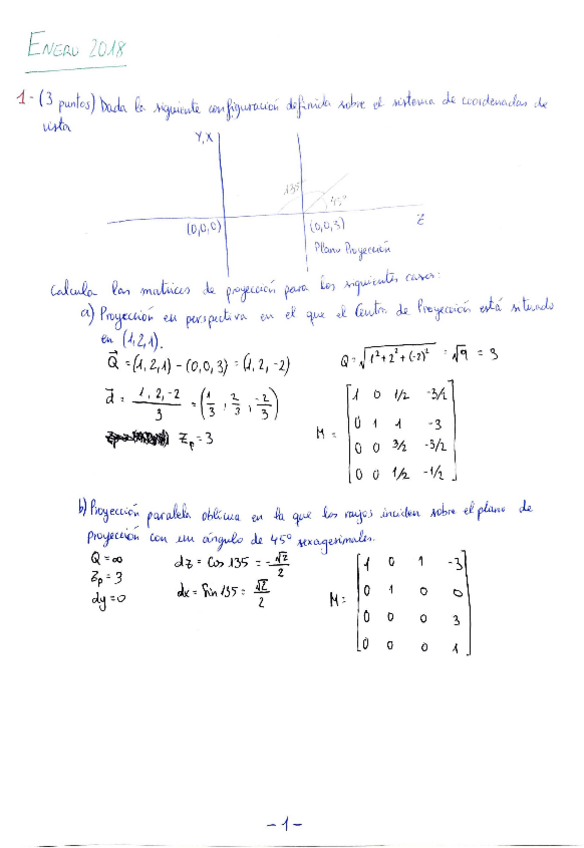 ENERO 2018
1- (3 puntos) Dada la siguiente configuración definida sobre el sistema de coordenadas de
vista
Y,X
135°
45°
(0,0,0)
(0,0,3)
Z
Plano Proyección
Calcula las matrices de proyección para los siguientes casos:
a) Proyección en perspectiva en el que el Centro de Proyección está situado
en (1,2,1).
Q⃗ = (1,2,1) - (0,0,3) = (1,2,-2)
Q = √(1²+2²+(-2)²) = √9 = 3
d⃗ = 1,2,-2 / 3 = (1/3, 2/3, -2/3)
Zp = 3
M = [1 0 1/2 -3/2
0 1 1 -3
0 0 3/2 -3/2
0 0 1/2 -1/2]
b) Proyección paralela oblicua en la que los rayos inciden sobre el plano de
proyección con un ángulo de 45° sexagesimales.
Q = ∞
dz = Cos 135 = -√2/2
Zp = 3
dx = Sin 135 = √2/2
dy = 0
M = [1 0 1 -3
0 1 0 0
0 0 0 3
0 0 0 1]
-1-